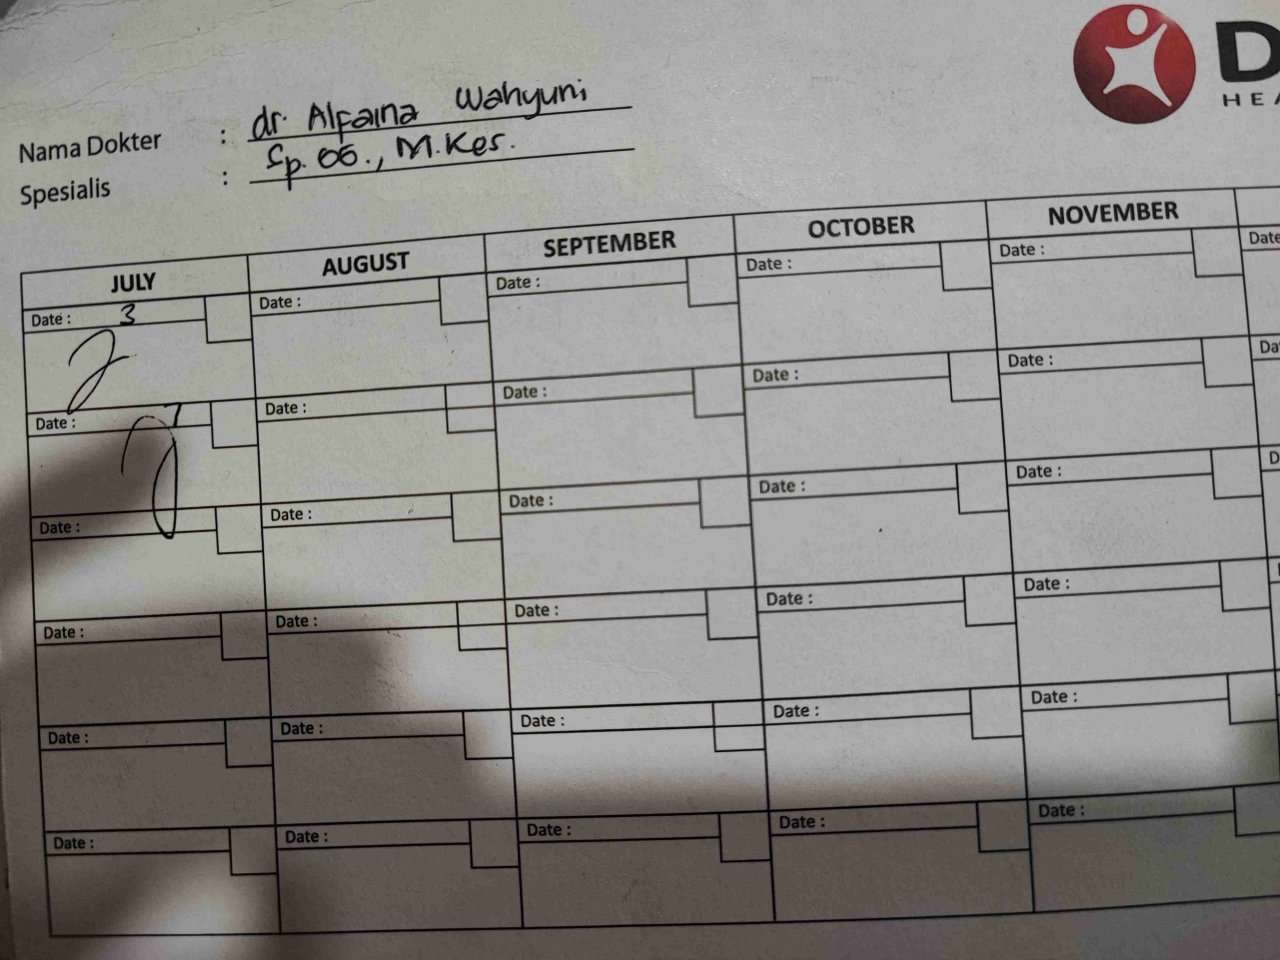 D
HEA
Nama Dokter : dr. Alfaina Wahyuni
Spesialis : Sp. OG., M.Kes.
JULY AUGUST SEPTEMBER OCTOBER NOVEMBER
Date : 3 Date : Date : Date : Date : Date
Date : 7 Date : Date : Date : Date : Da
Date : Date : Date : Date : Date : D
Date : Date : Date : Date : Date :
Date : Date : Date : Date : Date :
Date : Date : Date : Date : Date :